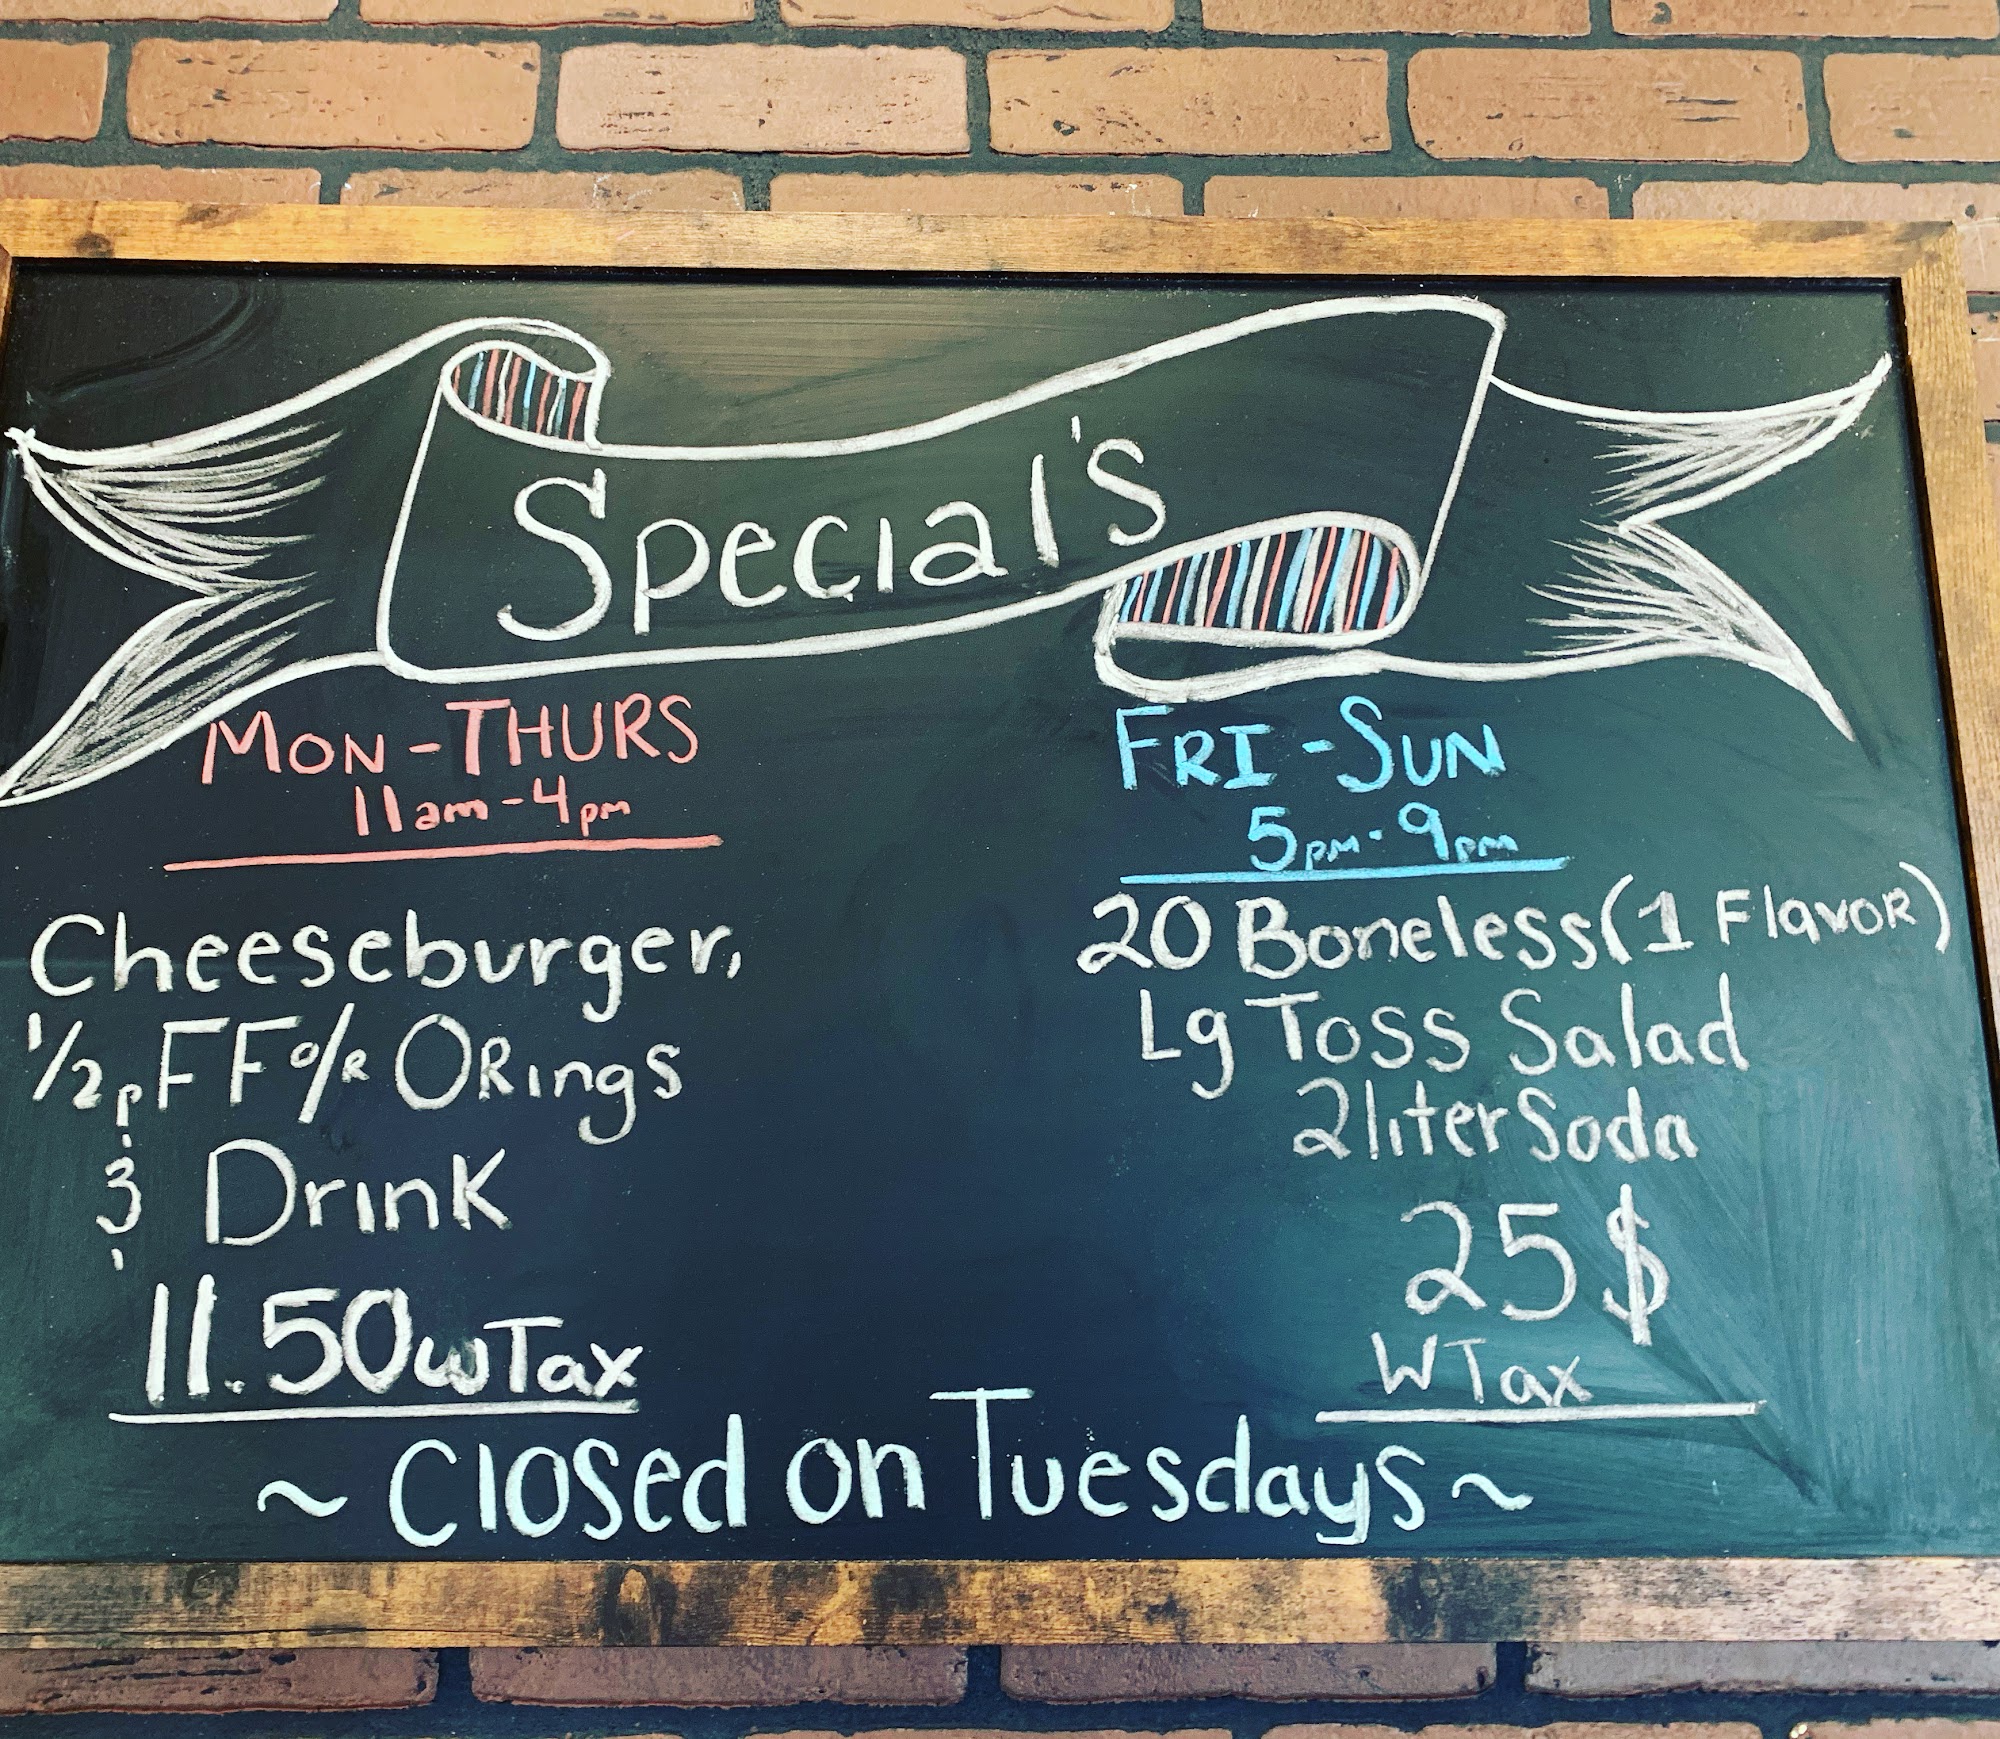 Special's
MON-THURS
11am-4pm
Cheeseburger,
1/2p FF o/R ORings
& Drink
11.50 wTax
FRI-SUN
5pm-9pm
20 Boneless (1 Flavor)
Lg Toss Salad
2 liter Soda
25$
W Tax
~ Closed on Tuesdays ~